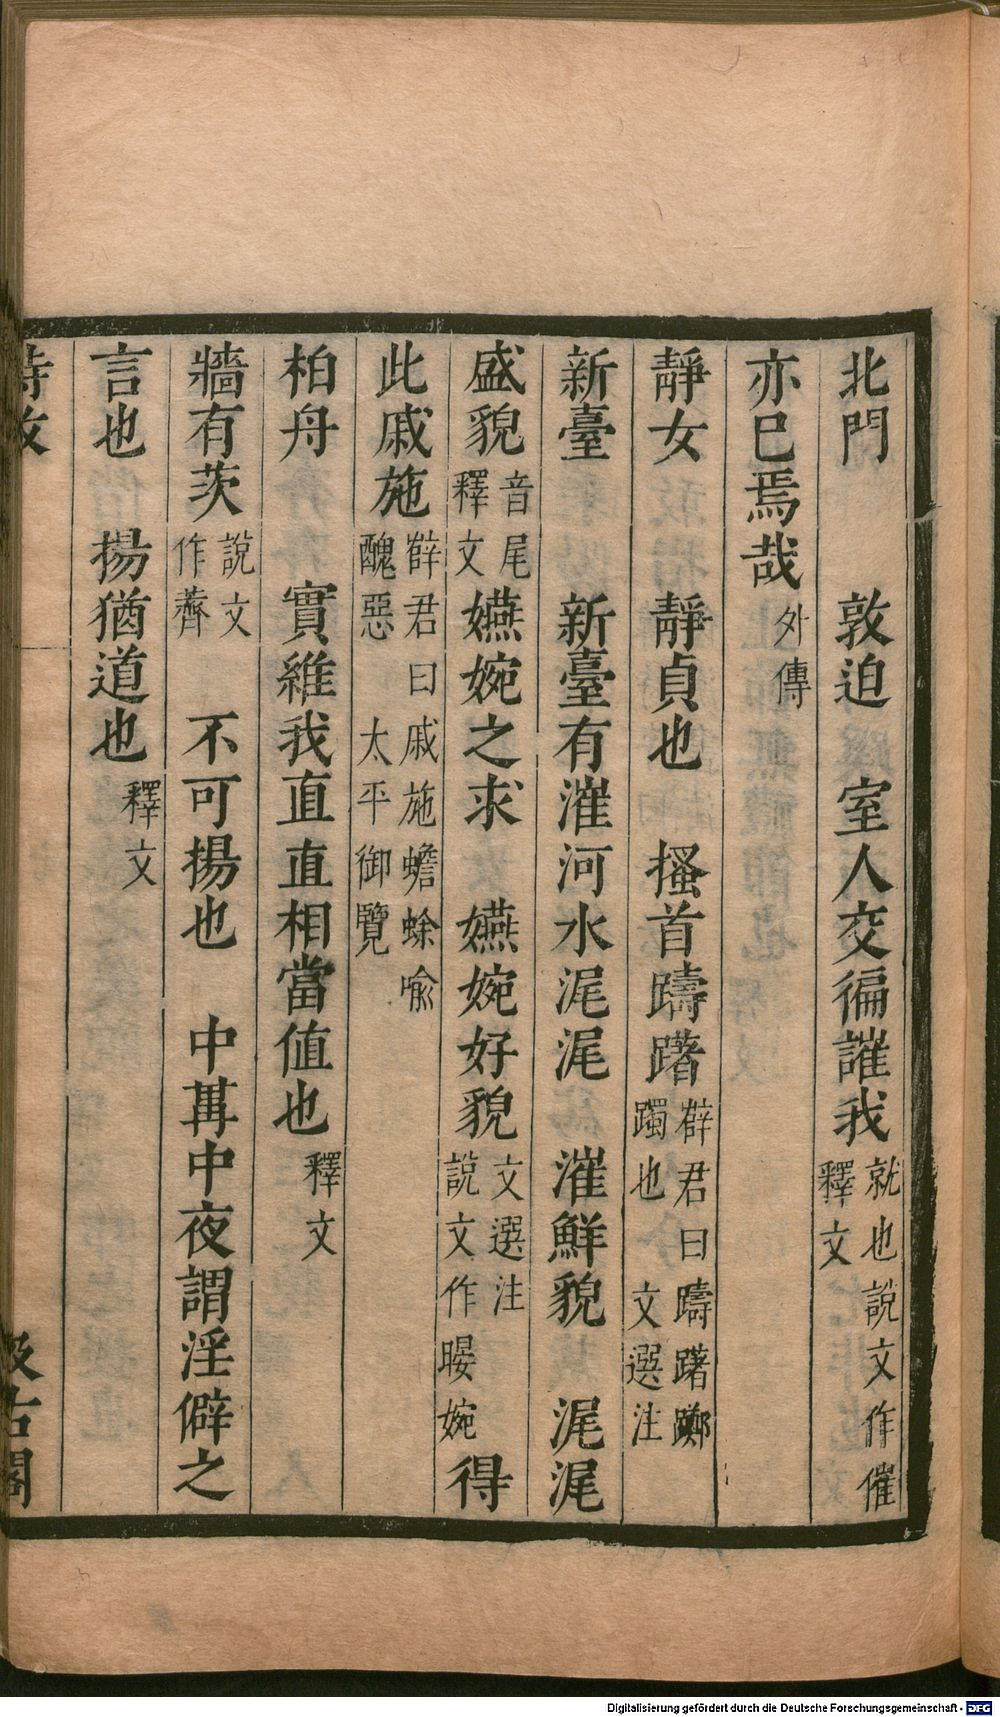 北門　敦迫　室人交徧讙我就也說文作催釋文
亦巳焉哉外傳
靜女　靜貞也　搔首躊躇薛君曰躊躇躑躅也　文選注
新臺　新臺有漼河水浘浘　漼鮮貌　浘浘
盛貌音尾釋文嬿婉之求　嬿婉好貌文選注說文作暥婉得
此戚施薛君曰戚施蟾蜍喻醜惡　太平御覽
柏舟　實維我直直相當值也釋文
牆有茨說文作薺　不可揚也　中冓中夜謂淫僻之
言也　揚猶道也釋文
詩攷　汲古閣
Digitalisierung gefördert durch die Deutsche Forschungsgemeinschaft - DFG